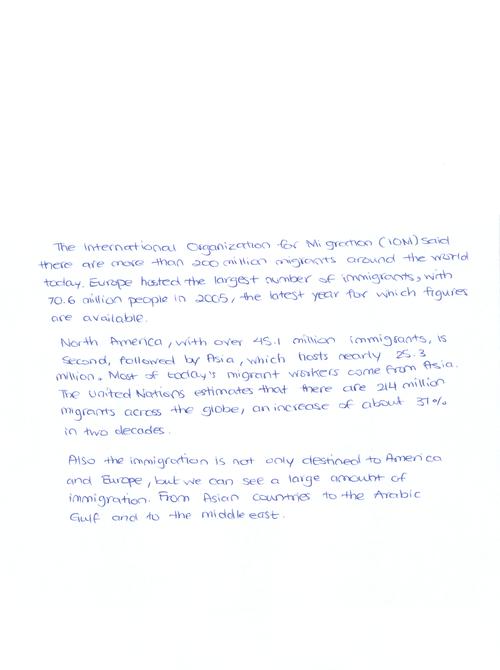 The International Organization for Migration (IOM) said
there are more than 200 million migrants around the world
today. Europe hosted the largest number of immigrants, with
70.6 million people in 2005, the latest year for which figures
are available.
North America, with over 45.1 million immigrants, is
Second, followed by Asia, which hosts nearly 25.3
million. Most of today's migrant workers come from Asia.
The United Nations estimates that there are 214 million
migrants across the globe, an increase of about 37%
in two decades.
Also the immigration is not only destined to America
and Europe, but we can see a large amount of
immigration. From Asian countries to the Arabic
Gulf and to the middle east.